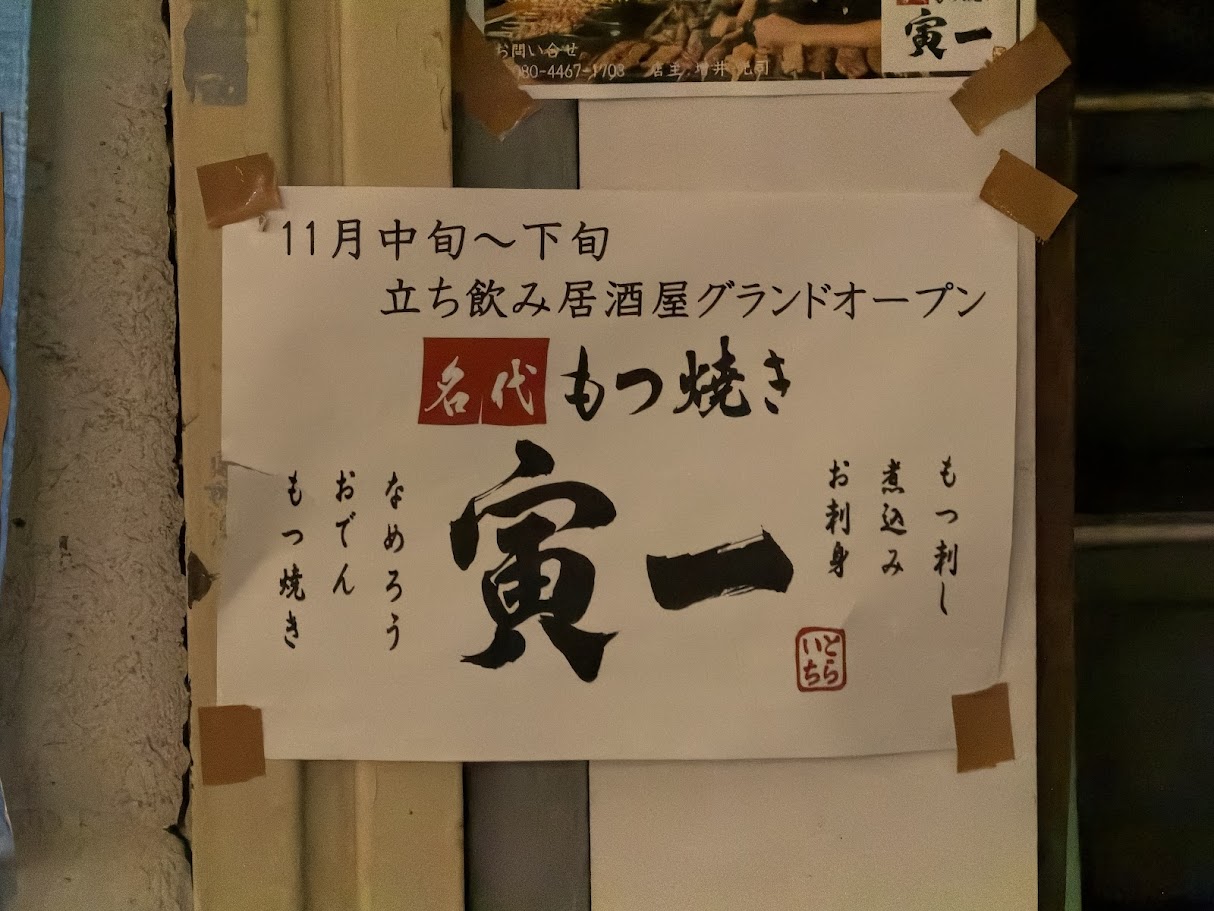 寅一
お問い合せ
080-4467-1703 店主 増井
11月中旬～下旬
立ち飲み居酒屋グランドオープン
名代もつ焼き
寅一
もつ刺し
煮込み
お刺身
なめろう
おでん
もつ焼き
とらいち